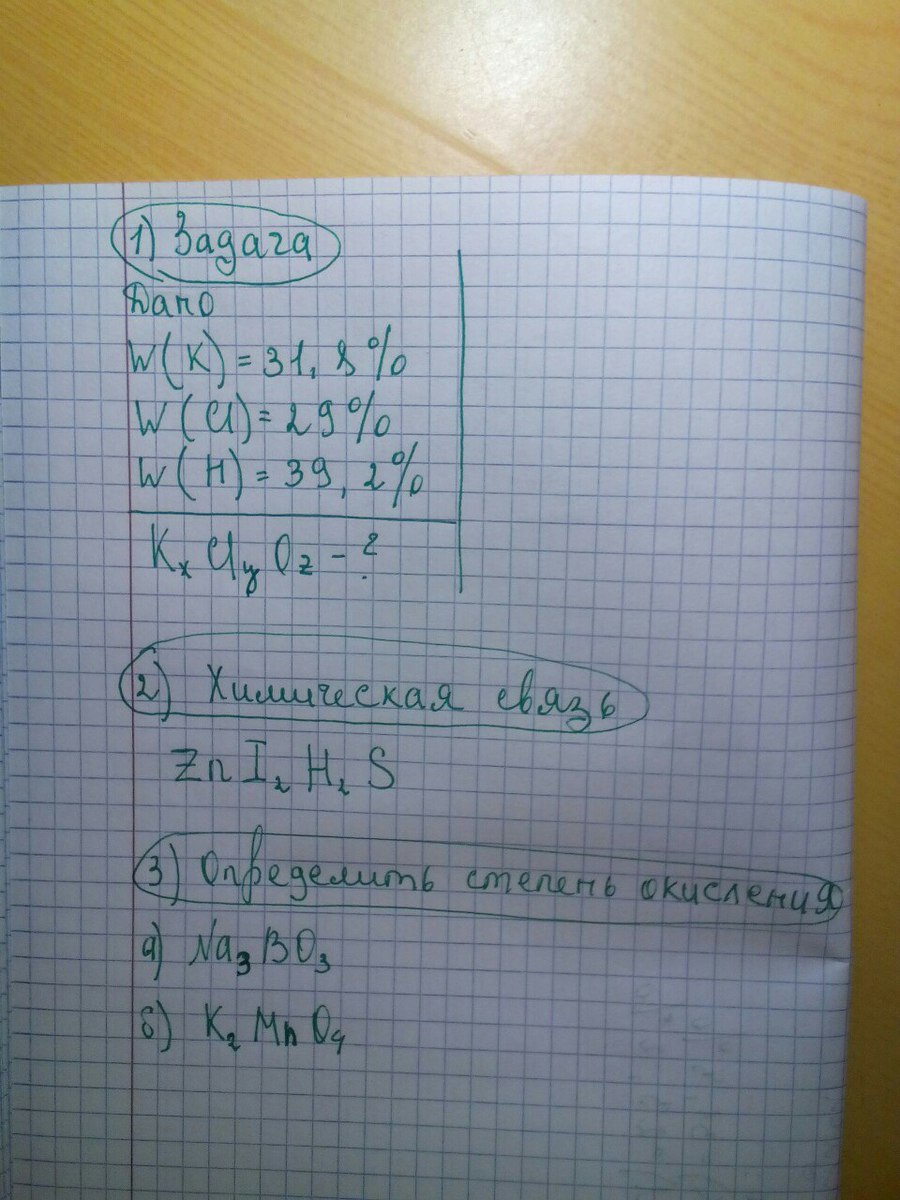 1) Задача
Дано
W(K) = 31,8%
W(Cl) = 29%
W(H) = 39,2%
KₓClᵧO_z - ?
2) Химическая связь
ZnI₂ H₂S
3) Определить степень окисления
а) Na₃BO₃
б) K₂MnO₄